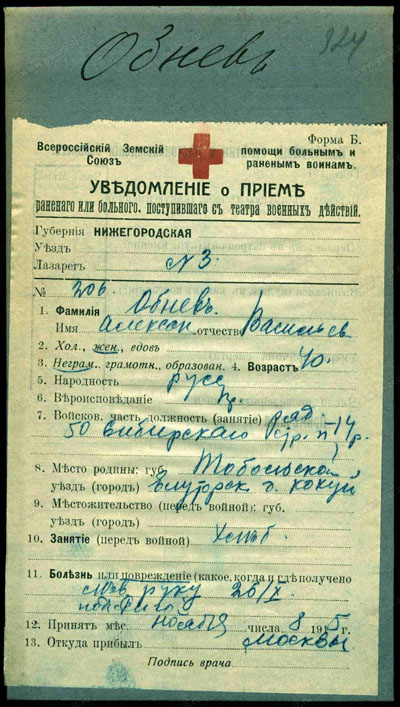 Обневъ
324
Форма Б.
Всероссійскій Земскій Союзъ помощи больнымъ и раненымъ воинамъ.
УВѢДОМЛЕНІЕ о ПРІЕМѢ
раненаго или больного, поступившаго съ театра военныхъ дѣйствій.
Губернія НИЖЕГОРОДСКАЯ
Уѣздъ
Лазаретъ N 3.
№ 206.
1. Фамилія Обневъ
Имя Алексѣй отчество Васильев
2. Хол., жен., вдовъ
3. Неграм., грамотн., образован. 4. Возрастъ 40.
5. Народность русс
6. Вѣроисповѣданіе пр.
7. Войсков. часть, должность (занятіе) ряд.
50 Сибирскаго стр. п. 14 р.
8. Мѣсто родины: губ. Тобольской
уѣздъ (городъ) д. Кокуй
9. Мѣстожительство (передъ войной): губ.
уѣздъ (городъ)
10. Занятіе (передъ войной) Хлѣб.
11. Болѣзнь или поврежденіе (какое, когда и гдѣ получено)
руку 26/X.
12. Принятъ мѣс. ноября числа 8 1915 г.
13. Откуда прибылъ Москвы
Подпись врача